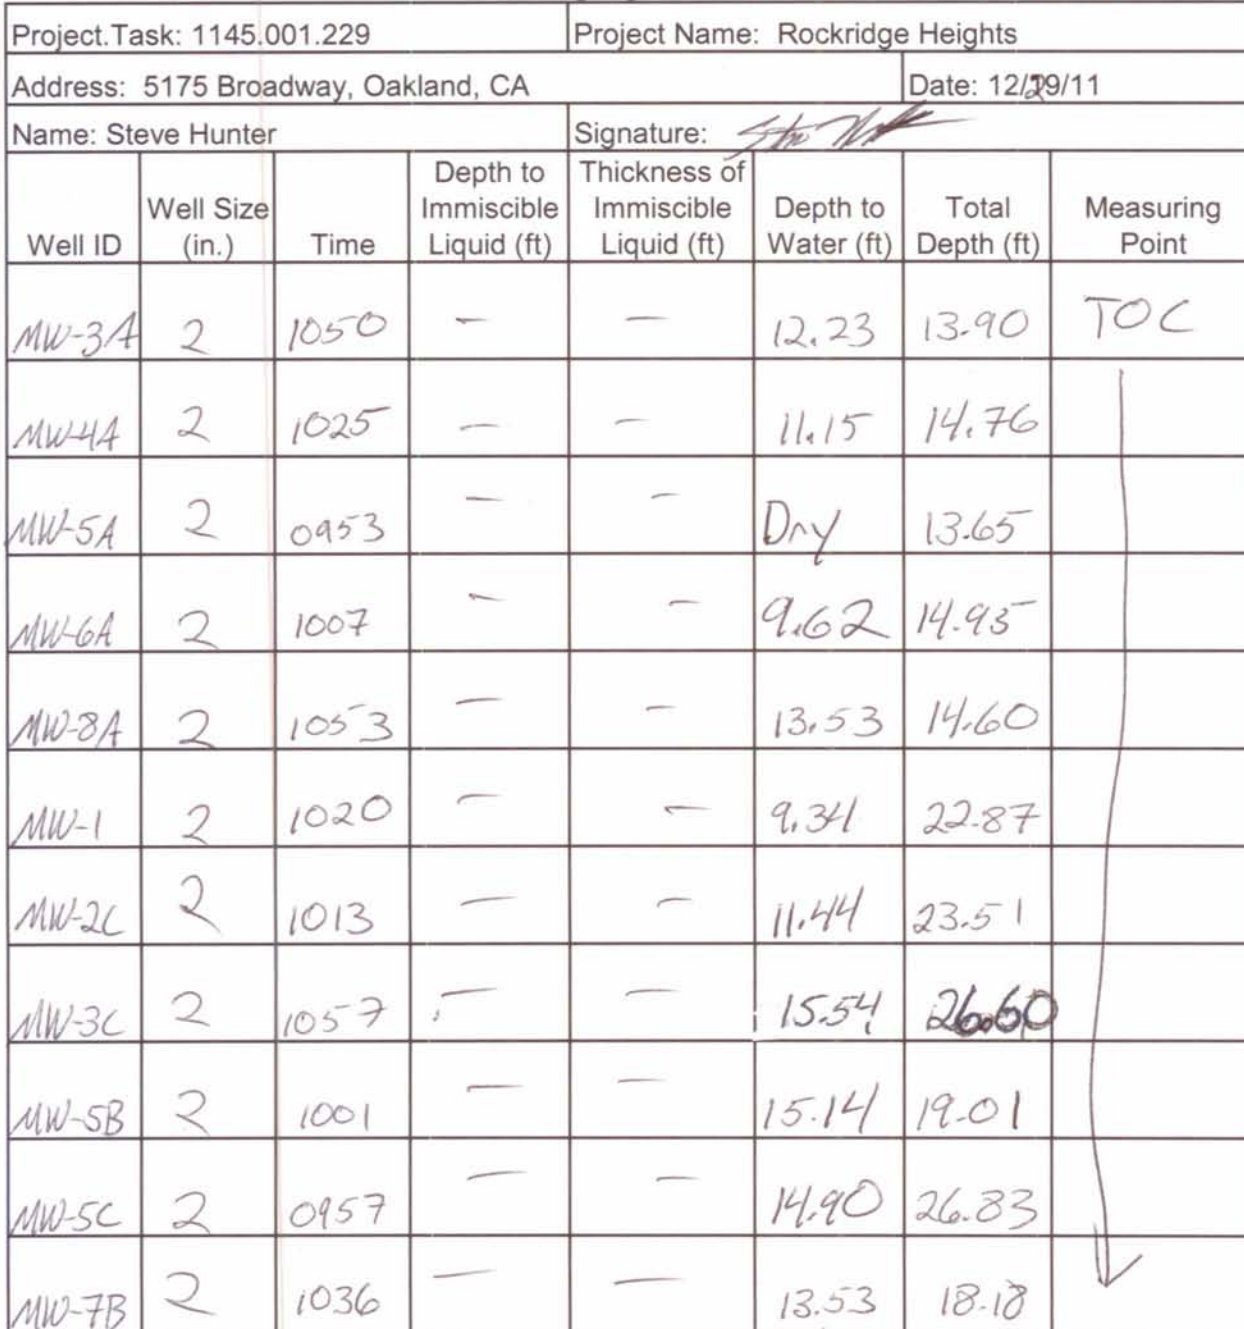 Project.Task: 1145.001.229 Project Name: Rockridge Heights
Address: 5175 Broadway, Oakland, CA Date: 12/29/11
Name: Steve Hunter Signature:
Well ID Well Size (in.) Time Depth to Immiscible Liquid (ft) Thickness of Immiscible Liquid (ft) Depth to Water (ft) Total Depth (ft) Measuring Point
MW-3A 2 1050 — — 12.23 13.90 TOC
MW-4A 2 1025 — — 11.15 14.76
MW-5A 2 0953 — — Dry 13.65
MW-6A 2 1007 — — 9.62 14.95
MW-8A 2 1053 — — 13.53 14.60
MW-1 2 1020 — — 9.34 22.87
MW-2C 2 1013 — — 11.44 23.51
MW-3C 2 1057 — — 15.54 26.60
MW-5B 2 1001 — — 15.14 19.01
MW-5C 2 0957 — — 14.90 26.83
MW-7B 2 1036 — — 13.53 18.18